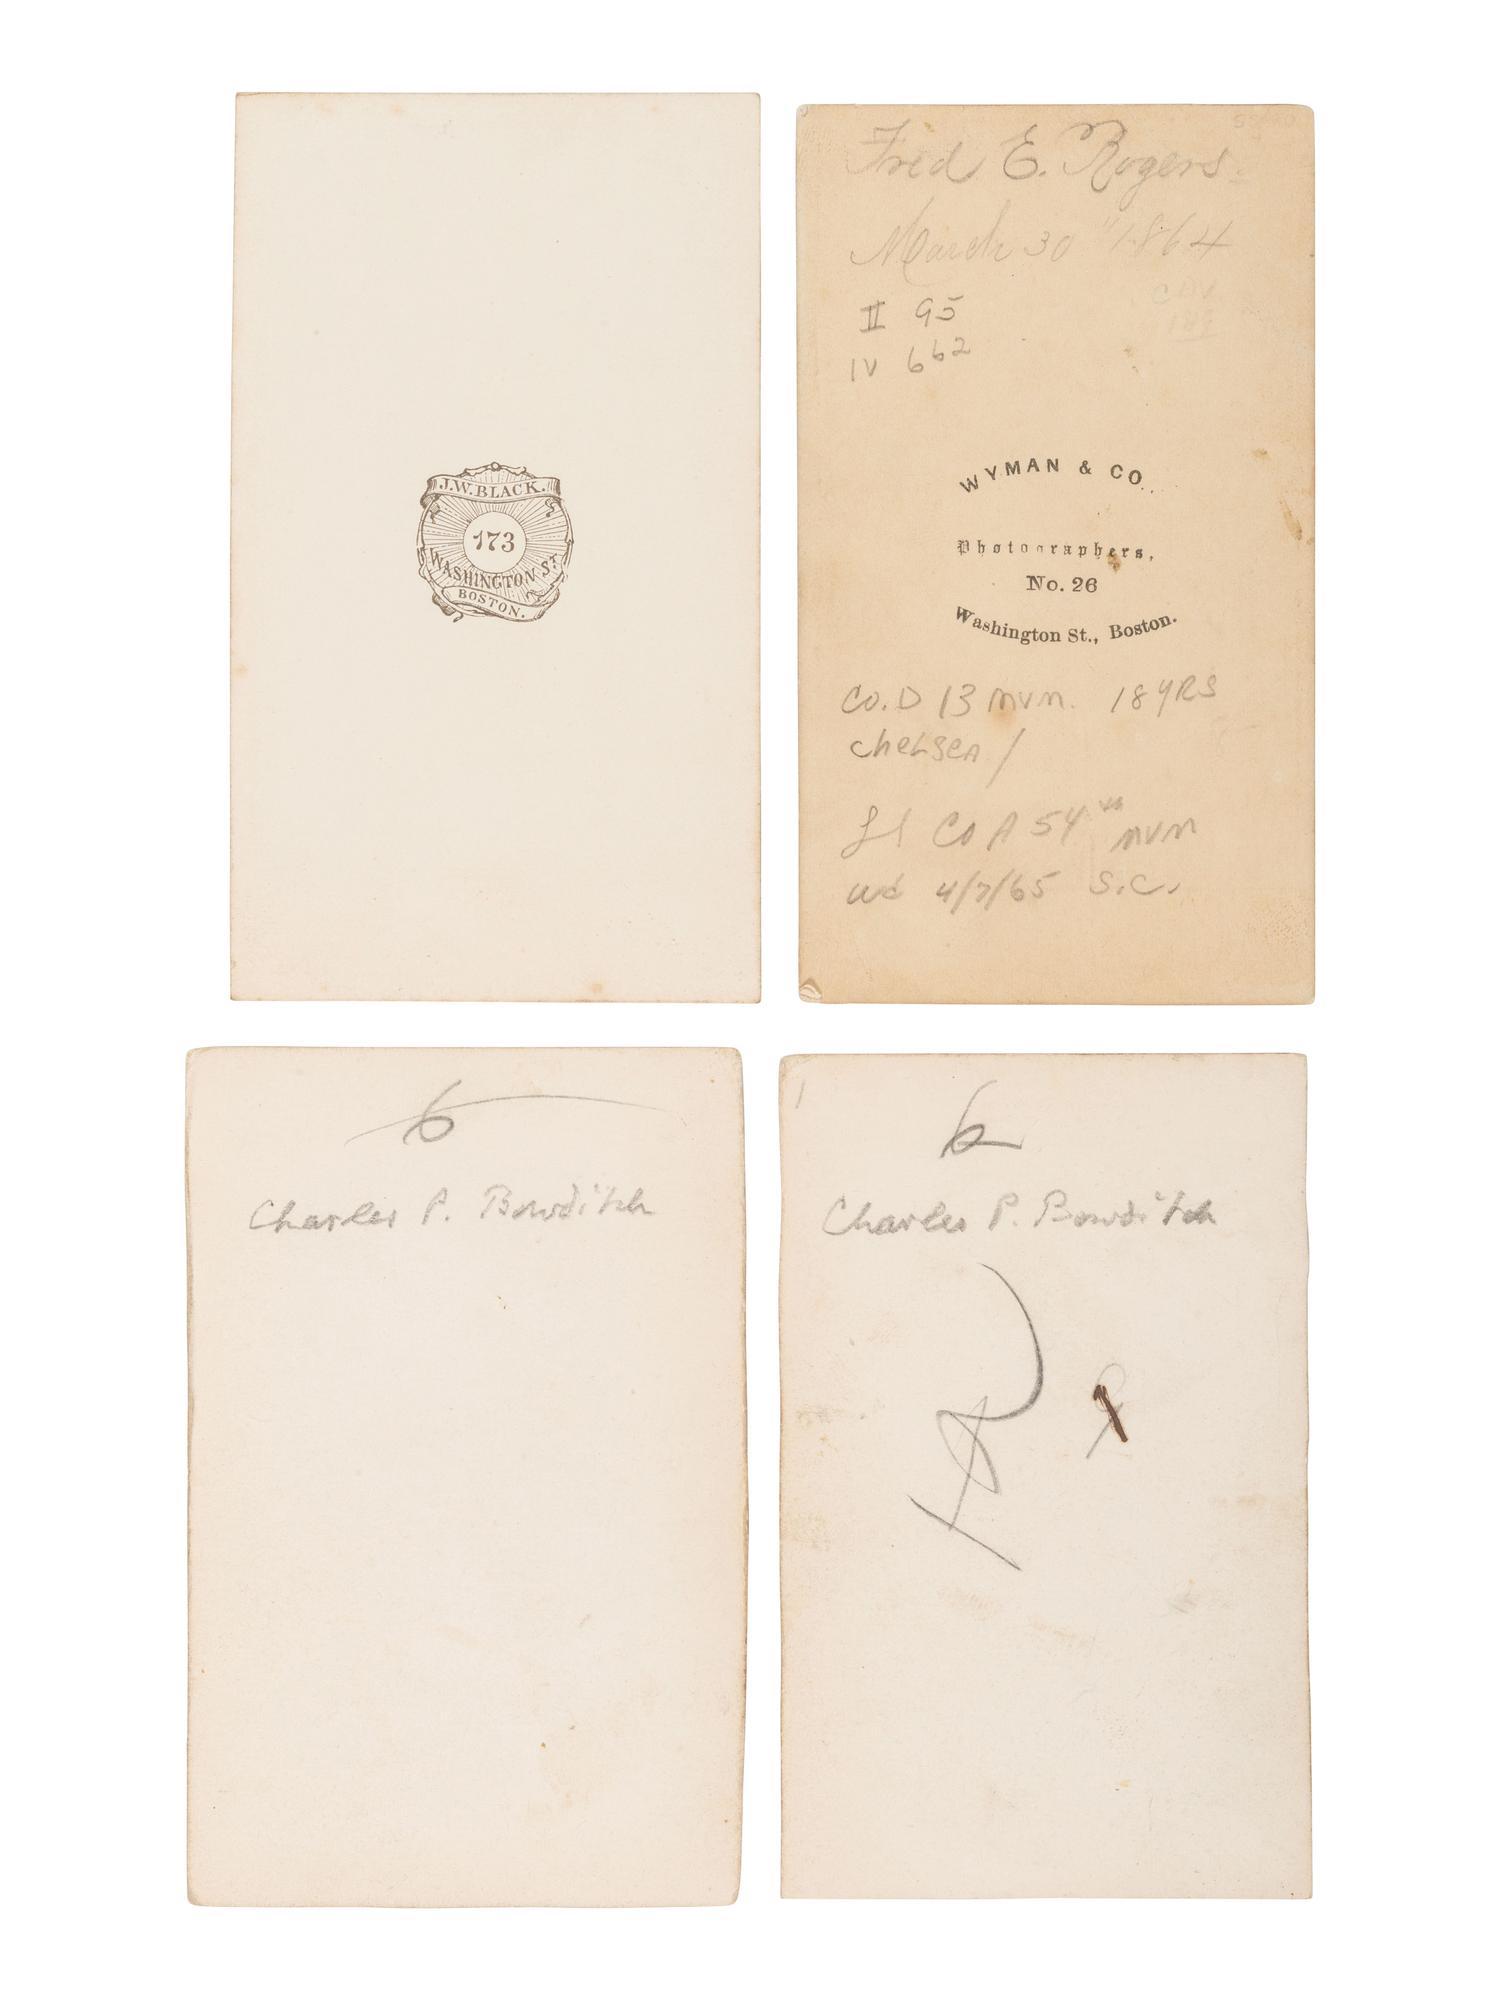 J.W. BLACK.
173
WASHINGTON ST.
BOSTON.
Fred E. Rogers.
March 30 "1864
II 95
IV 662
WYMAN & CO.
Photographers,
No. 26
Washington St., Boston.
Co. D 13 MVM. 18 YRS
Chelsea /
Co A 54th MVM
wd 4/7/65 S.C.
6
Charles P. Bowditch
6
Charles P. Bowditch